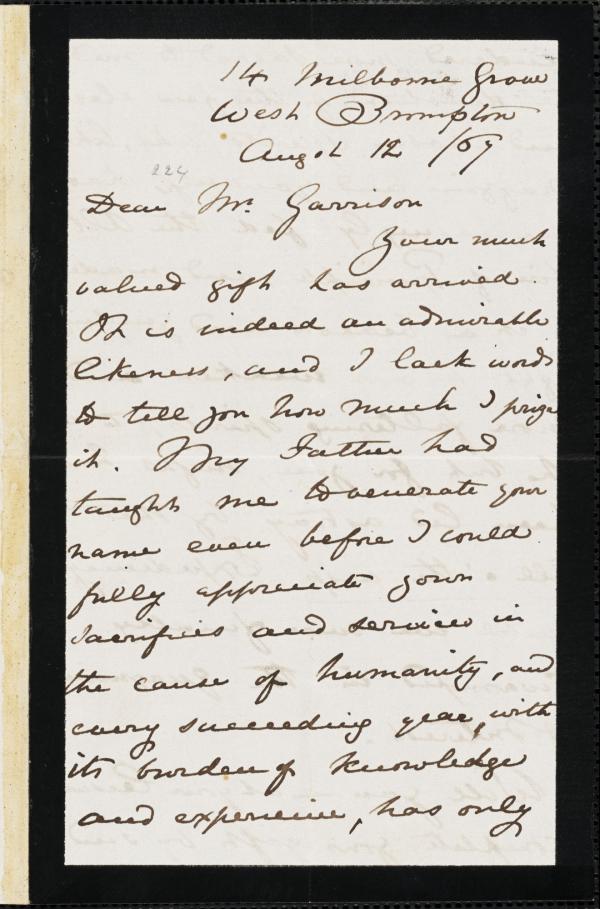 14 Milborne Grove
West Brompton
Augst 12 /69
224
Dear Mr. Garrison
Your much
valued gift has arrived.
It is indeed an admirable
likeness, and I lack words
to tell you how much I prize
it. My Father had
taught me to venerate your
name even before I could
fully appreciate your
sacrifices and services in
the cause of humanity, and
every succeeding year, with
its burden of knowledge
and experience, has only